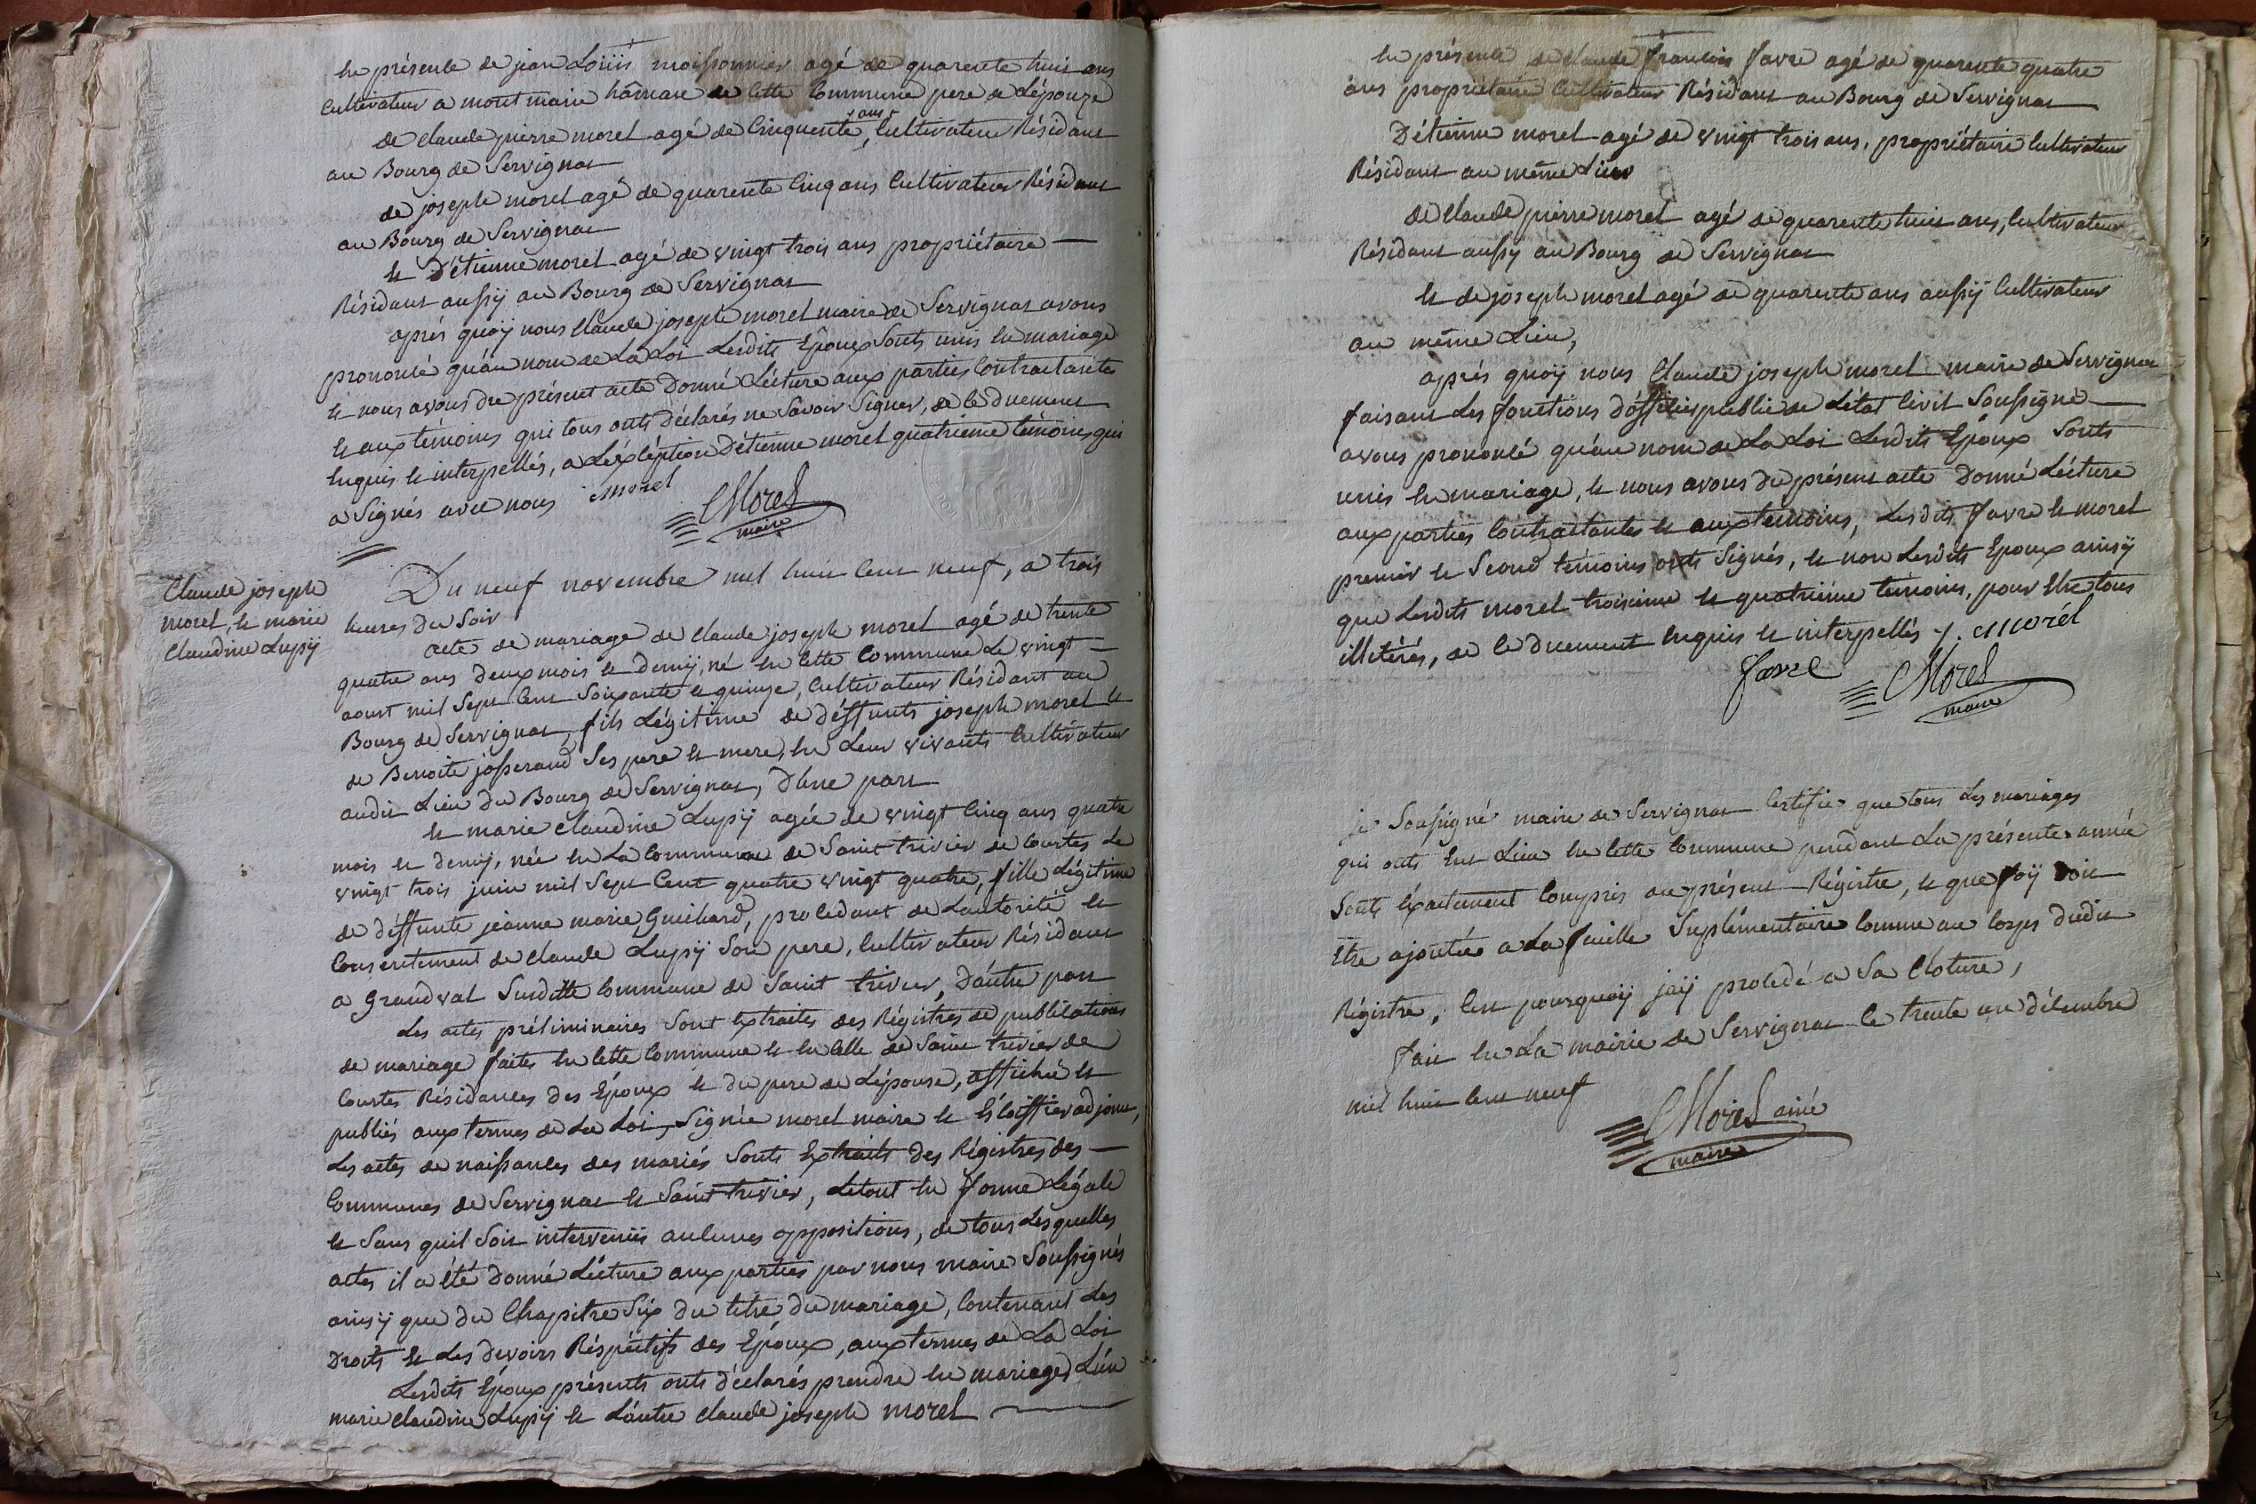 En présence de jean Loüis moissonnier agé de quarente huit ans
Cultivateur a mont main hâmeau de cette Commune pere de L'épouze
de claude pierre morel agé de Cinquente ans, Cultivateur Résidant
au Bourg de Servignat
de joseph morel agé de quarente Cinq ans Cultivateur Résidant
au Bourg de Servignat
et D'étienne morel agé de vingt trois ans propriétaire
Résidant aussÿ au Bourg de Servignat
aprés quoÿ nous Claude joseph morel maire de Servignat avons
prononcé qu'au nom de La Loi Lesdits Epoux Sonts unis En mariage
et nous avons du présent acte Donné Lécture aux parties Contractantes
et aux témoins qui tous onts déclarés ne Savoir Signer, de ce duement
Enquis et interpellés, a L'éxcéption D'étienne morel quatrième témoins qui
a Signés avec nous morel
CMorel
maire
Claude joseph
morel, et marie
Claudine Lupÿ
Du neuf novembre mil huit Cent neuf, a trois
heures du Soir
acte de mariage de claude joseph morel agé de trente
quatre ans deux mois et demÿ, né En cette Commune Le vingt
aoust mil Sept Cent Soixante et quinze, Cultivateur Résidant au
Bourg de Servignat, fils Légitime de déffunts joseph morel et
de Benoite josserand Ses pere et mere, En Leur vivants Cultivateur
audit Lieu du Bourg de Servignat, D'une part
et marie claudine Lupÿ agée de vingt Cinq ans quatre
mois et demÿ, née En La Commune de Saint trivier de Courtes Le
vingt trois juin mil Sept Cent quatre vingt quatre, fille Légitime
de déffunte jeanne marie Guichard, procedant de L'autorité et
Consentement de claude Lupÿ Son pere, Cultivateur Résidant
a Grandval Susditte Commune de Saint trivier, D'autre part
Les actes préliminaires Sont Extraits des Régistres de publications
de mariage faites En cette Commune et En Celle de Saint trivier de
Courtes Résidances des Epoux et du pere de L'épouse, affiché et
publiés aux termes de La Loi, Signée morel maire et adjoint,
Les actes de naissances des mariés Sonts Extraits des Régistres des
Communes de Servignat et Saint trivier, Letout En forme Légale
et Sans quil Soit intervenüs aucunes oppositions, de tous Lesquelles
actes il a été donné Lécture aux parties par nous maire Soussignés
ainsÿ que du Chapitre Six du titre du mariage, Contenant Les
Droits et Les devoirs Réspéctifs des Epoux, aux termes de La Loi
Lesdits Epoux présents onts déclarés prendre En mariage, L'un
marie claudine Lupÿ et L'autre claude joseph morel
En présence de claude francois favre agé de quarente quatre
ans propriétaire Cultivateur Résidant au Bourg de Servignat
D'étienne morel agé de vingt trois ans, propriétaire Cultivateur
Résidant au même Lieu
de claude pierre morel agé de quarente huit ans, Cultivateur
Résidant aussÿ au Bourg de Servignat
et de joseph morel agé de quarente ans aussÿ Cultivateur
au même Lieu,
aprés quoÿ nous Claude joseph morel maire de Servignat
faisant Les fonctions D'officier public de L'état Civil Soussigné
avons prononcé qu'au nom de La Loi Lesdits Epoux Sonts
unis En mariage, et nous avons du présent acte Donné Lécture
aux parties Contractantes et aux témoins, Lesdits favre et morel
premier et Second témoins onts Signés, et non Lesdits Epoux ainsÿ
que Lesdits morel troisième et quatrième témoins, pour Etre tous
illitérés, de ce duement Enquis et interpellés /. morel
favre
CMorel
maire
je Soussigné maire de Servignat Certifie que tous Les mariages
qui onts Eut Lieu En cette Commune pendant La présente année
Sonts éxactement Compris au présent Régistre, et que foÿ doit
Etre ajoutée a La feuille Suplémentaire Comme au Corps dudit
Régistre, C'est pourquoÿ jaÿ procedé a Sa Cloture,
Fait En La mairie de Servignat le trente un décembre
mil huit Cent neuf
CMorel ainé
maire